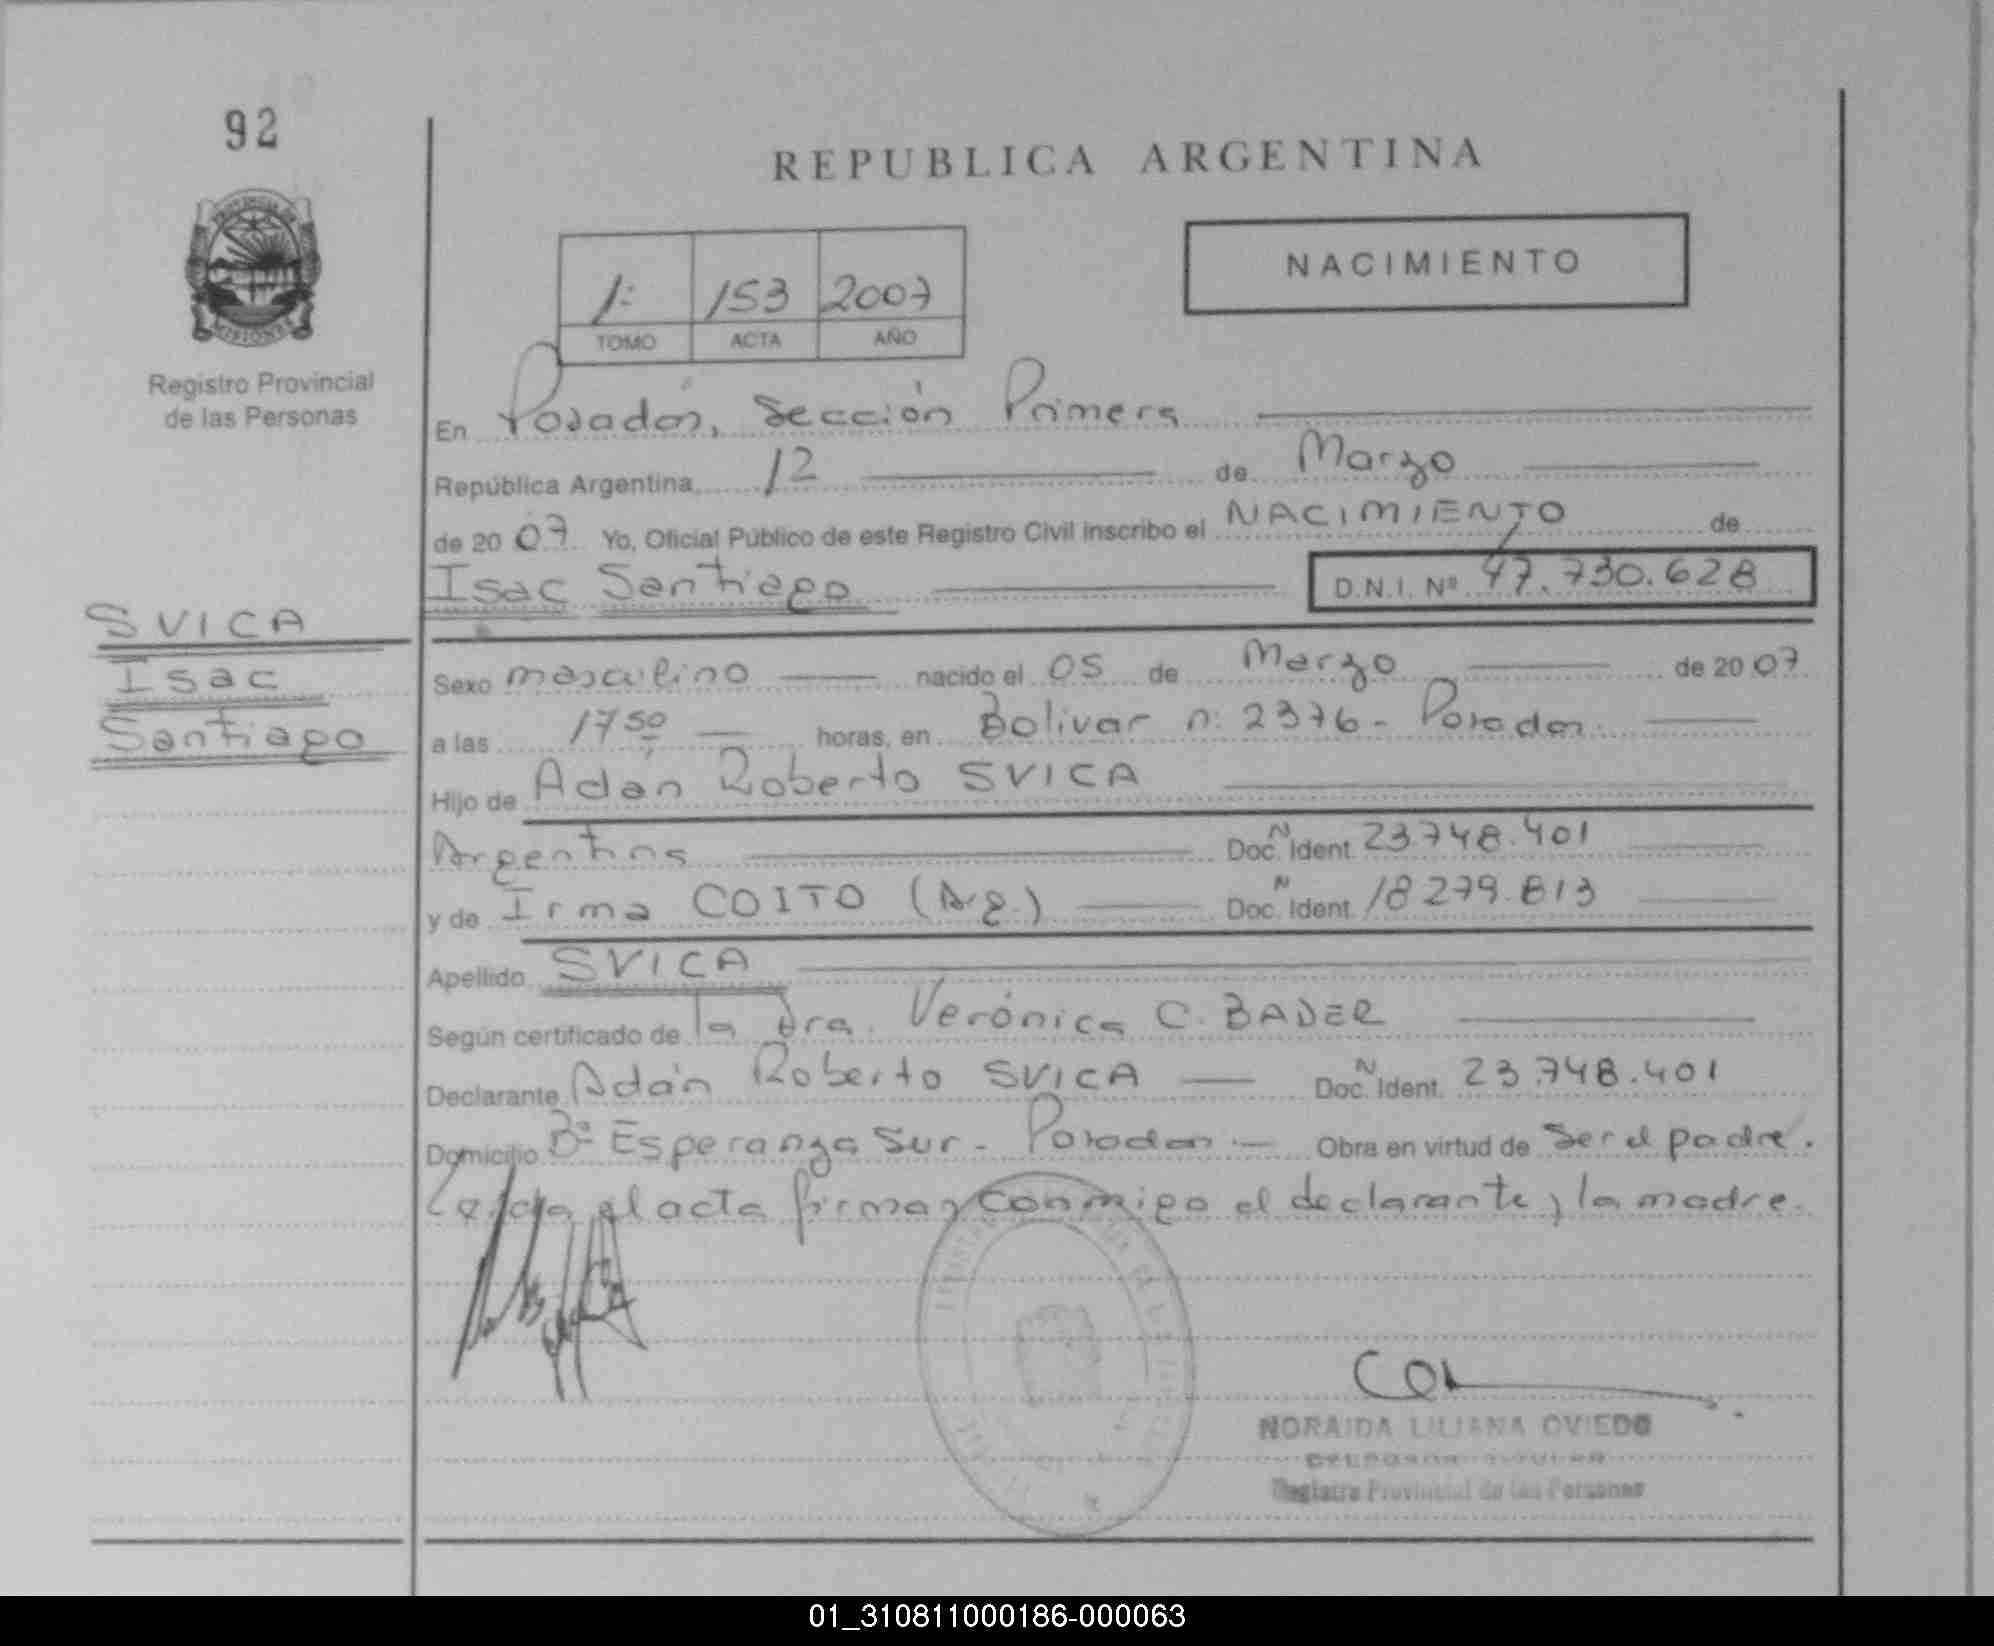 92
REPUBLICA ARGENTINA
PROVINCIA DE
MISIONES
Registro Provincial
de las Personas
1º 153 2007
TOMO ACTA AÑO
NACIMIENTO
En Posadas, Sección Primera
República Argentina, 12 de Marzo
de 2007 Yo, Oficial Público de este Registro Civil inscribo el NACIMIENTO de
Isac Santiago D.N.I. Nº 47.730.628
SVICA
Isac
Santiago
Sexo masculino nacido el 05 de Marzo de 2007
a las 17 50 horas, en Bolivar nº 2376 - Posadas.
Hijo de Adán Roberto SVICA
Argentina Doc. N Ident. 23.748.401
y de Irma COITO (Arg.) Doc. N Ident. 18279.813
Apellido SVICA
Según certificado de la Dra. Verónica C. BADER
Declarante Adán Roberto SVICA Doc. N Ident. 23.748.401
Domicilio Bº Esperanza Sur - Posadas.- Obra en virtud de Ser el padre.
Leída el acta firman conmigo el declarante y la madre.
NORAIDA LILIANA OVIEDO
Registro Provincial de las Personas
01_310811000186-000063